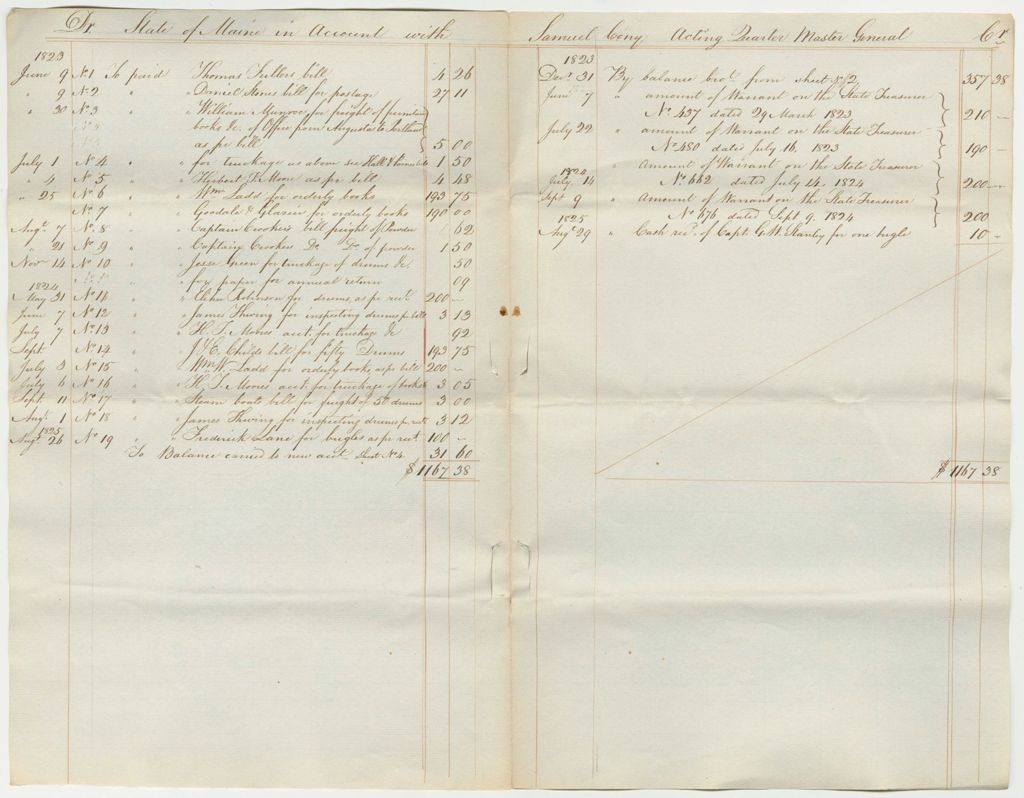 Dr. State of Maine in Account with
1823
June 9 No 1 To paid Thomas bill 4 26
" 9 No 2 " Daniel Stones bill for postage 27 11
" 30 No 3 " William for freight of furniture
books &c. of Office from Augusta to Portland
as pr bill 5 00
July 1 No 4 " for truckage as above see 1 50
" 4 No 5 " Herbert Moore as pr bill 4 48
" 25 No 6 " Wm Ladd for orderly books 193 75
No 7 " Goodale & Glazier for orderly books 190 00
Augt 7 No 8 " Captain Crookers bill freight of Powder 62
" 21 No 9 " Captain Crooker Do Do of powder 1 50
Novr 14 No 10 " Jesse for truckage of drums &c. 50
" for paper for annual return 09
1824
May 31 No 11 " John Robinson for drums, as pr rect. 200 –
June 7 No 12 " James Thwing for inspecting drums pr bill 3 13
July 7 No 13 " H. T. Moores acct. for truckage &c 92
Sept No 14 " J & C. Childs bill for fifty Drums 193 75
July 3 No 15 " Wm W. Ladd for orderly books, as pr bill 200 –
July 6 No 16 " H. T. Moores acct for truckage of books 3 05
Sept. 11 No 17 " Steam boats bill for freight of 50 drums 3 00
Augt. 1 No 18 " James Thwing for inspecting drums pr rect 3 12
1825
Augt. 26 No 19 " Frederick Lane for bugles as pr rect. 100 –
To Balance carried to new acct. Sheet No 4. 31 60
$1167 38
Samuel Cony Acting Quarter Master General Cr
1823
Decr. 31 By balance brot. from sheet No 2 357 38
June 7 " amount of Warrant on the State Treasurer
No. 437 dated 29 March 1823 210 –
July 22 " amount of Warrant on the State Treasurer
No 480 dated July 16, 1823 190 –
1824
July 14 " Amount of Warrant on the State Treasurer
No. 662 dated July 14. 1824 200 –
Sept 9 " Amount of Warrant on the State Treasurer
No 676 dated Sept 9. 1824 200
1825
Augt 29 " Cash recd. of Capt. G. W. Stanley for one bugle 10 –
$1167 38